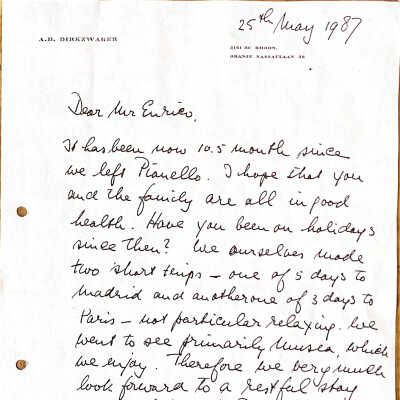 25th May 1987
A.D. DIRKZWAGER
3161 DC RHOON,
ORANJE NASSAULAAN 36
Dear Mr Enrico,
It has been now 10.5 month since
we left Pianello. I hope that you
and the family are all in good
health. Have you been on holidays
since then? We ourselves made
two short trips – one of 5 days to
Madrid and another one of 3 days to
Paris – not particular relaxing. We
went to see primarily Musea, which
we enjoy. Therefore we very much
look forward to a restful stay